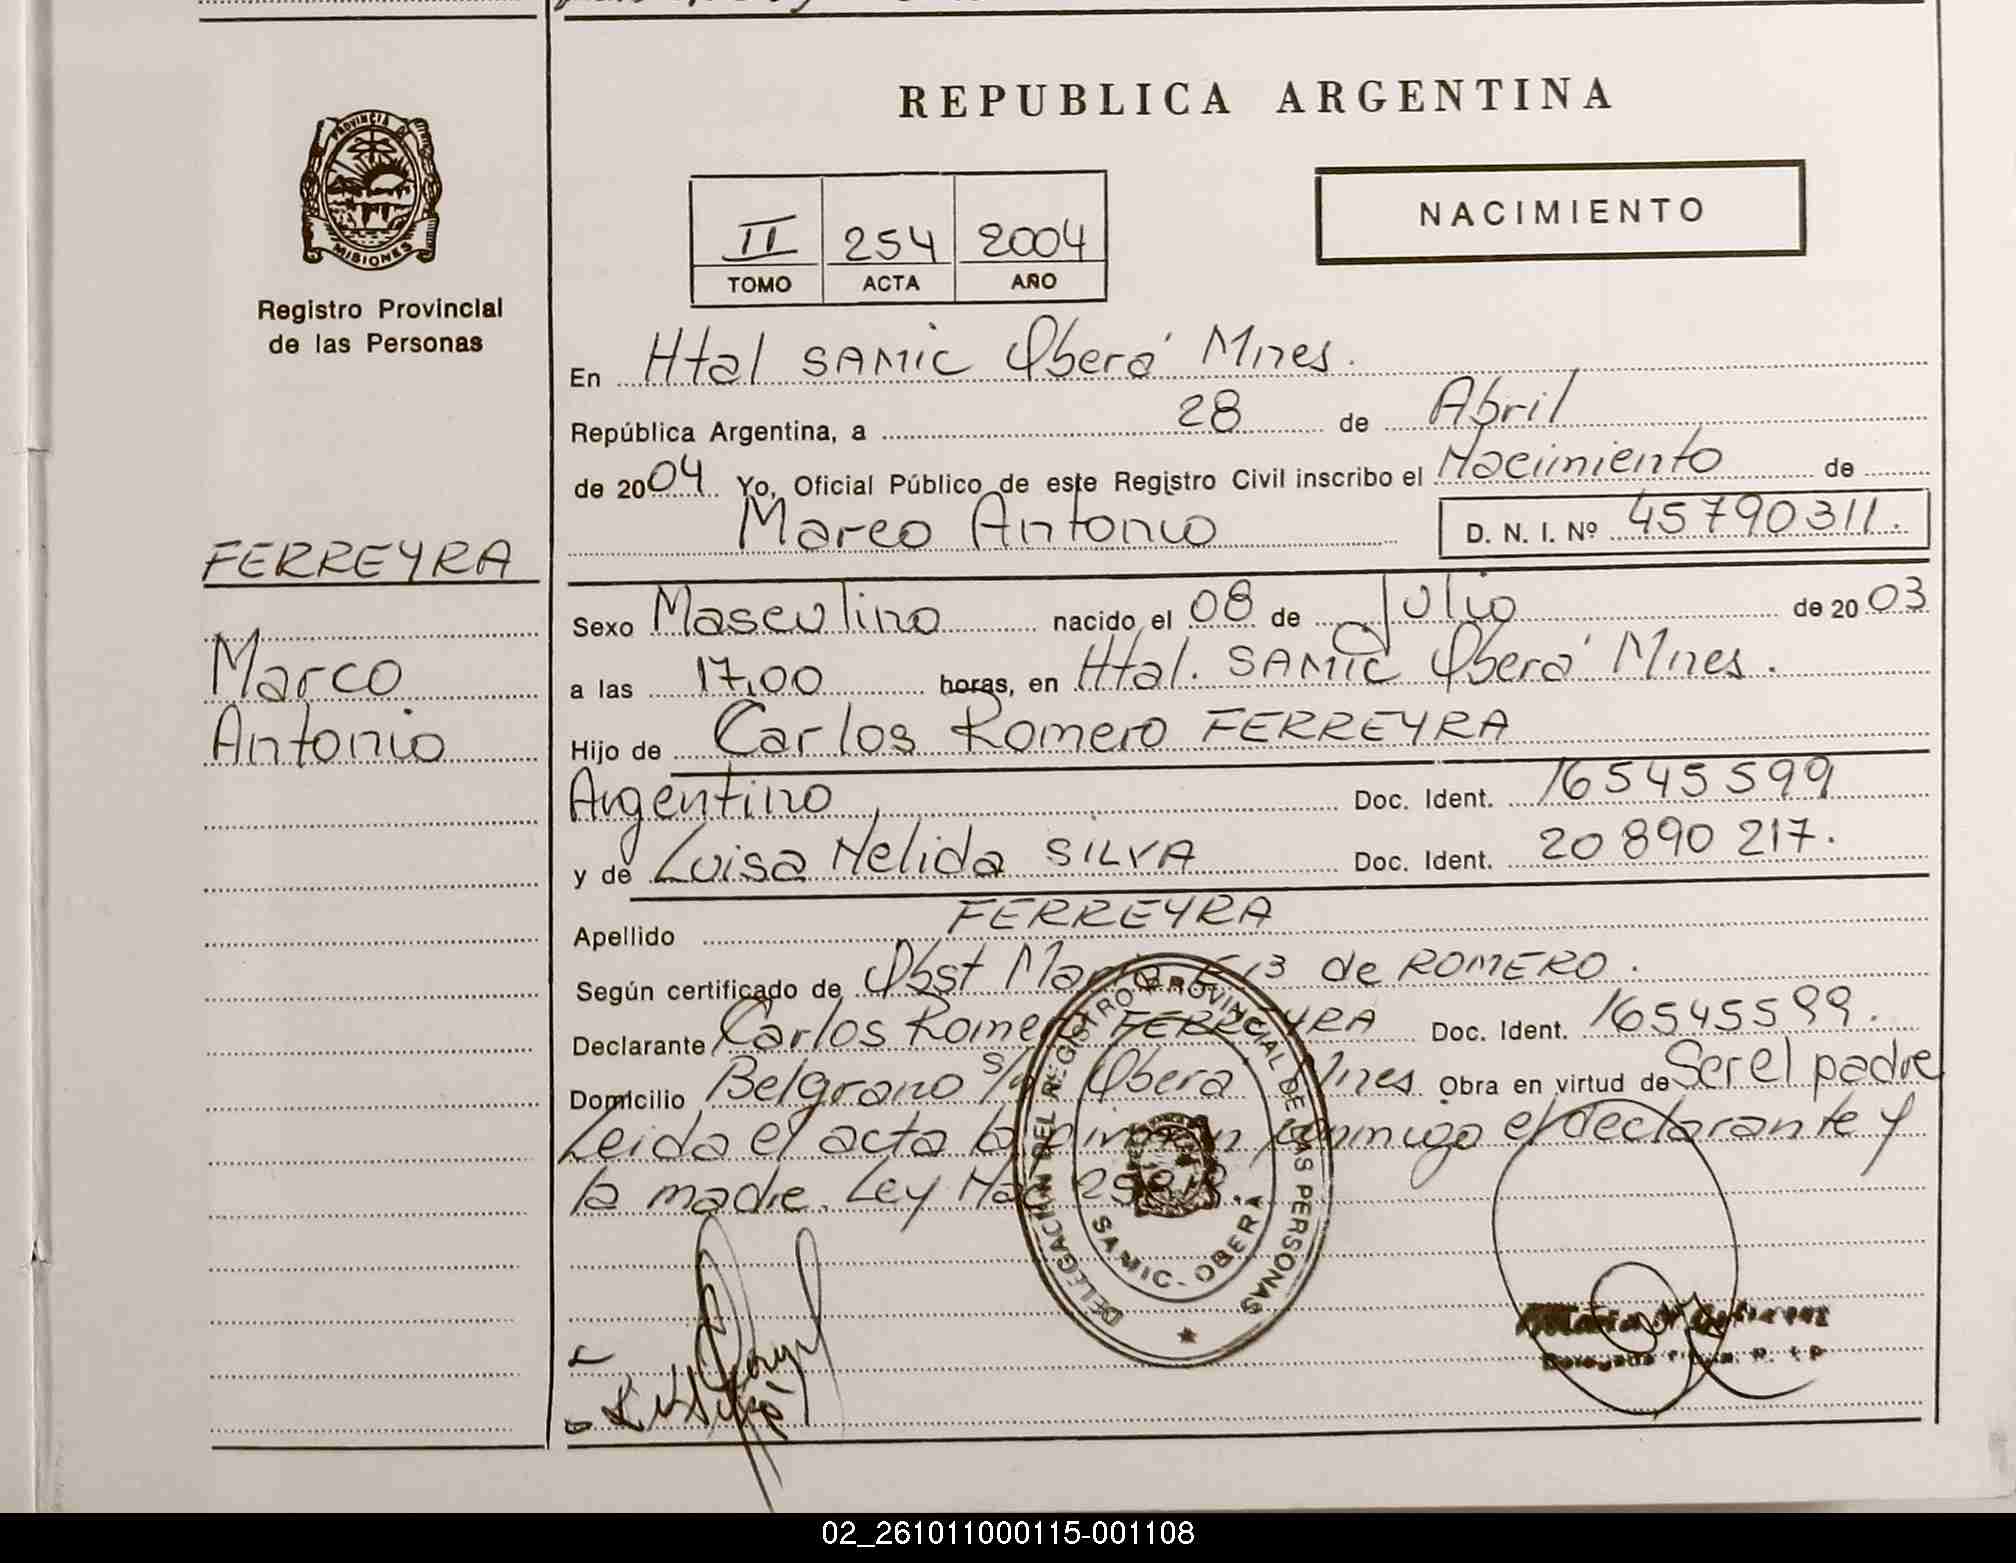 REPUBLICA ARGENTINA
PROVINCIA DE
MISIONES
Registro Provincial
de las Personas
II 254 2004
TOMO ACTA AÑO
NACIMIENTO
En Htal SAMIC Oberá Mnes.
República Argentina, a 28 de Abril
de 2004 Yo, Oficial Público de este Registro Civil inscribo el Nacimiento de
Marco Antonio D. N. I. Nº 45790311.
FERREYRA
Marco
Antonio
Sexo Masculino nacido el 08 de Julio de 2003
a las 17,00 horas, en Htal. SAMIC Oberá Mnes.
Hijo de Carlos Romero FERREYRA
Argentino Doc. Ident. 16545599
y de Luisa Nelida SILVA Doc. Ident. 20 890 217.
Apellido FERREYRA
Según certificado de Obst de ROMERO.
Declarante Carlos Romero FERREYRA Doc. Ident. 16545599.
Domicilio Belgrano s/n Oberá Mnes Obra en virtud de Ser el padre
Leida el acta la firman conmigo el declarante y
la madre. Ley
DELEGACION DEL REGISTRO PROVINCIAL DE LAS PERSONAS
SAMIC - OBERA
02_261011000115-001108